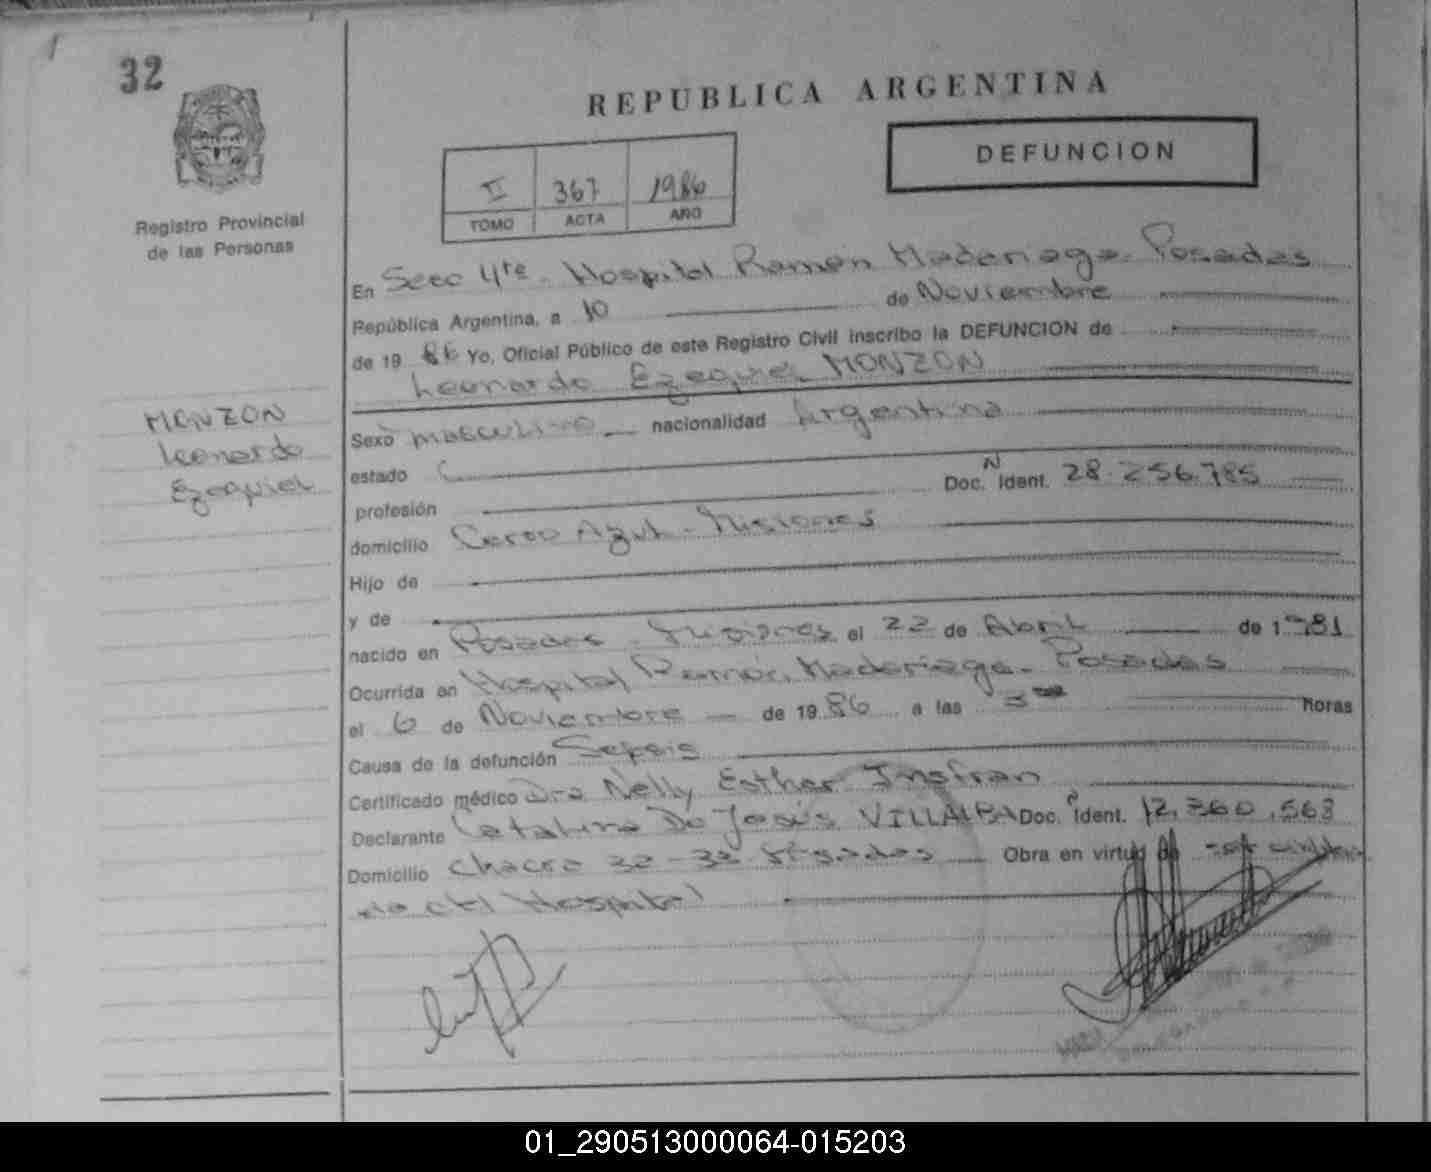 32
REPUBLICA ARGENTINA
DEFUNCION
II 367 1986
TOMO ACTA AÑO
Registro Provincial
de las Personas
En Secc 4ta - Hospital Ramón Madariaga - Posadas
República Argentina, a 10 de Noviembre
de 19 86 Yo, Oficial Público de este Registro Civil inscribo la DEFUNCION de
Leonardo Ezequiel MONZON
MONZON
Leonardo
Ezequiel
Sexo masculino nacionalidad Argentina
estado
profesión Doc. N Ident. 28.256.785
domicilio Cerro Azul - Misiones
Hijo de
y de
nacido en Posadas - Misiones el 22 de Abril de 1981
Ocurrida en Hospital Ramón Madariaga - Posadas
el 6 de Noviembre de 19 86 a las 3 horas
Causa de la defunción Sepsis
Certificado médico Dra Nelly Esther Insfran
Declarante Catalina De Jesús VILLALBA Doc. Ident. 12.360.563
Domicilio Chacra 32-33 Posadas Obra en virtud de
del Hospital
01_290513000064-015203